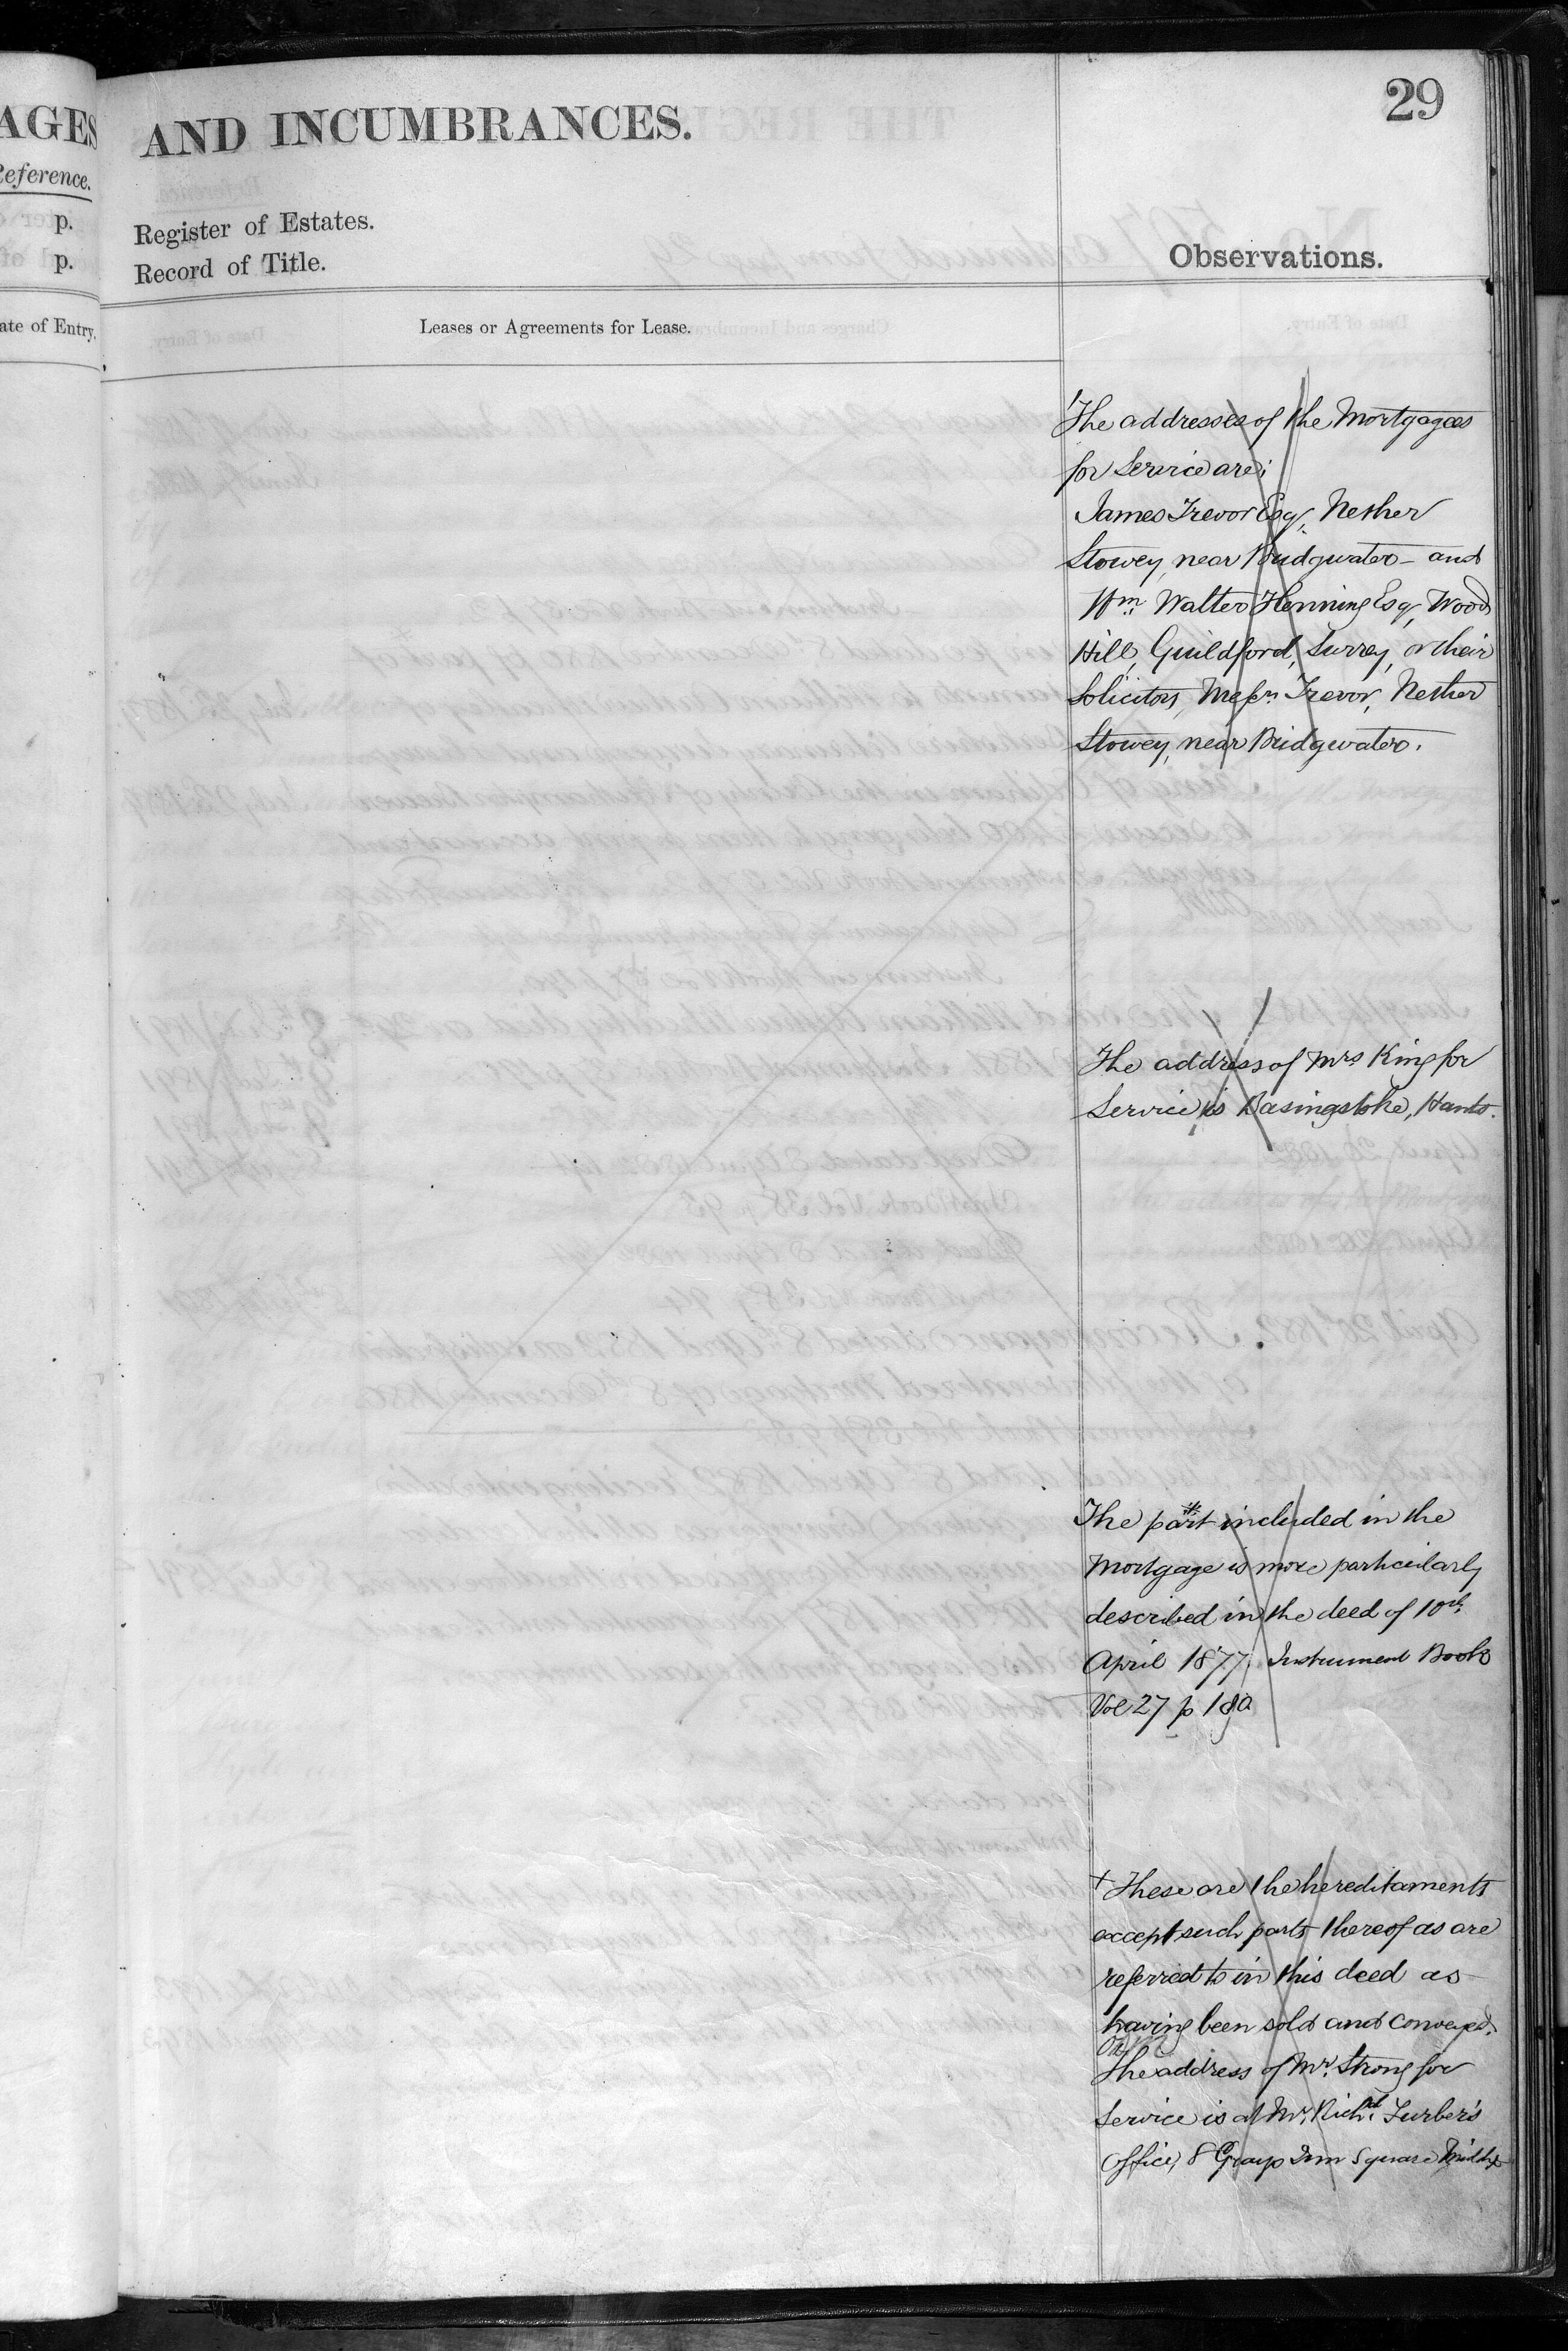 29
AGES
AND INCUMBRANCES.
Reference.
p.
Register of Estates.
p.
Record of Title.
Observations.
ate of Entry.
Leases or Agreements for Lease.
The addresses of the Mortgagees
for Service are;
James Trevor Esq, Nether
Stowey, near Bridgwater - and
Wm Walter Henning Esq, Wood
Hill, Guildford, Surrey, or their
Solicitors, Messrs Trevor, Nether
Stowey, near Bridgwater.
The address of Mrs King for
Service is Basingstoke, Hants.
The part included in the
Mortgage is more particularly
described in the deed of 10th
April 1877, Instrument Book
Vol 27 p
+ These are the hereditaments
except such parts thereof as are
referred to in this deed as
having been sold and conveyed.
The address of Mr. Strong for
Service is at Mr. Richd. Furber's
Office, 8 Grays Inn Square Middx